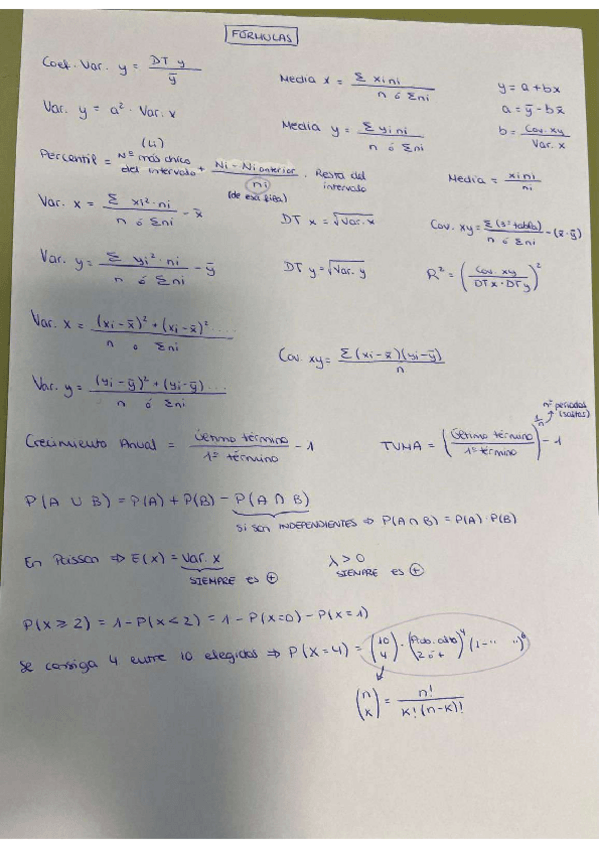 FÓRMULAS
Coef. Var. y = DT y / ȳ
Media x = Σ xi ni / n ó Σni
y = a + bx
Var. y = a² · Var. x
a = ȳ - bx̄
Media y = Σ yi ni / n ó Σni
b = Cov. xy / Var. x
(Li)
Percentil = Nº más chico del intervalo + Ni - Ni anterior / ni · Resta del intervalo
(de esa fila)
Media = xi ni / ni
Var. x = Σ xi² · ni / n ó Σni - x̄
DT x = √Var. x
Cov. xy = Σ(3ª tabla) / n ó Σni - (x̄ · ȳ)
Var. y = Σ yi² · ni / n ó Σni - ȳ
DT y = √Var. y
R² = (Cov. xy / DT x · DT y)²
Var. x = (xi - x̄)² + (xi - x̄)² .... / n o Σni
Cov. xy = Σ(xi - x̄)(yi - ȳ) / n
Var. y = (yi - ȳ)² + (yi - ȳ) ... / n ó Σni
nº periodos (saltos)
Crecimiento Anual = Último término / 1º término - 1
TVMA = (Último término / 1º término)^1/n - 1
P(A ∪ B) = P(A) + P(B) - P(A ∩ B)
Si son INDEPENDIENTES ⇒ P(A ∩ B) = P(A) · P(B)
En Poisson ⇒ E(x) = Var. x
λ > 0
SIEMPRE es ⊕
SIEMPRE es ⊕
P(x ≥ 2) = 1 - P(x < 2) = 1 - P(x=0) - P(x=1)
Se consiga 4 entre 10 elegidos ⇒ P(X=4) = (10 4) · (Prob. alto 2 ó +)⁴ (1 - " ")⁶
(n k) = n! / k! (n-k)!